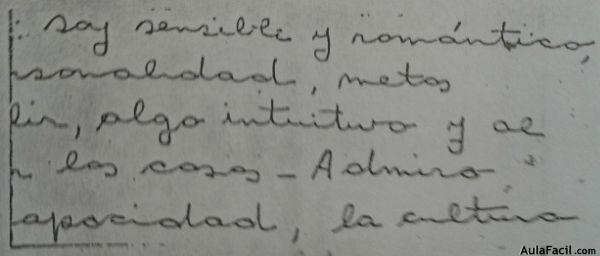 : soy sensible y romántico,
sonalidad, metas
lir, algo intuitivo y al
r las cosas - Admiro
apacidad, la cultura
AulaFacil.com